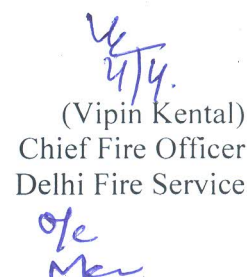 4/4.
(Vipin Kental)
Chief Fire Officer
Delhi Fire Service
o/c